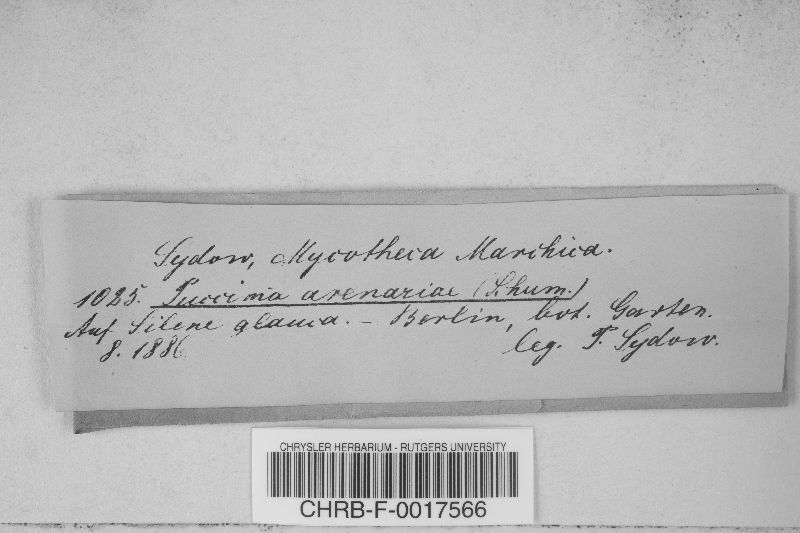 Sydow, Mycotheca Marchica.
1025. Puccinia arenariae (Schum.)
Auf Silene glauca. – Berlin, bot. Garten.
8. 1886. leg. P. Sydow.
CHRYSLER HERBARIUM - RUTGERS UNIVERSITY
CHRB-F-0017566